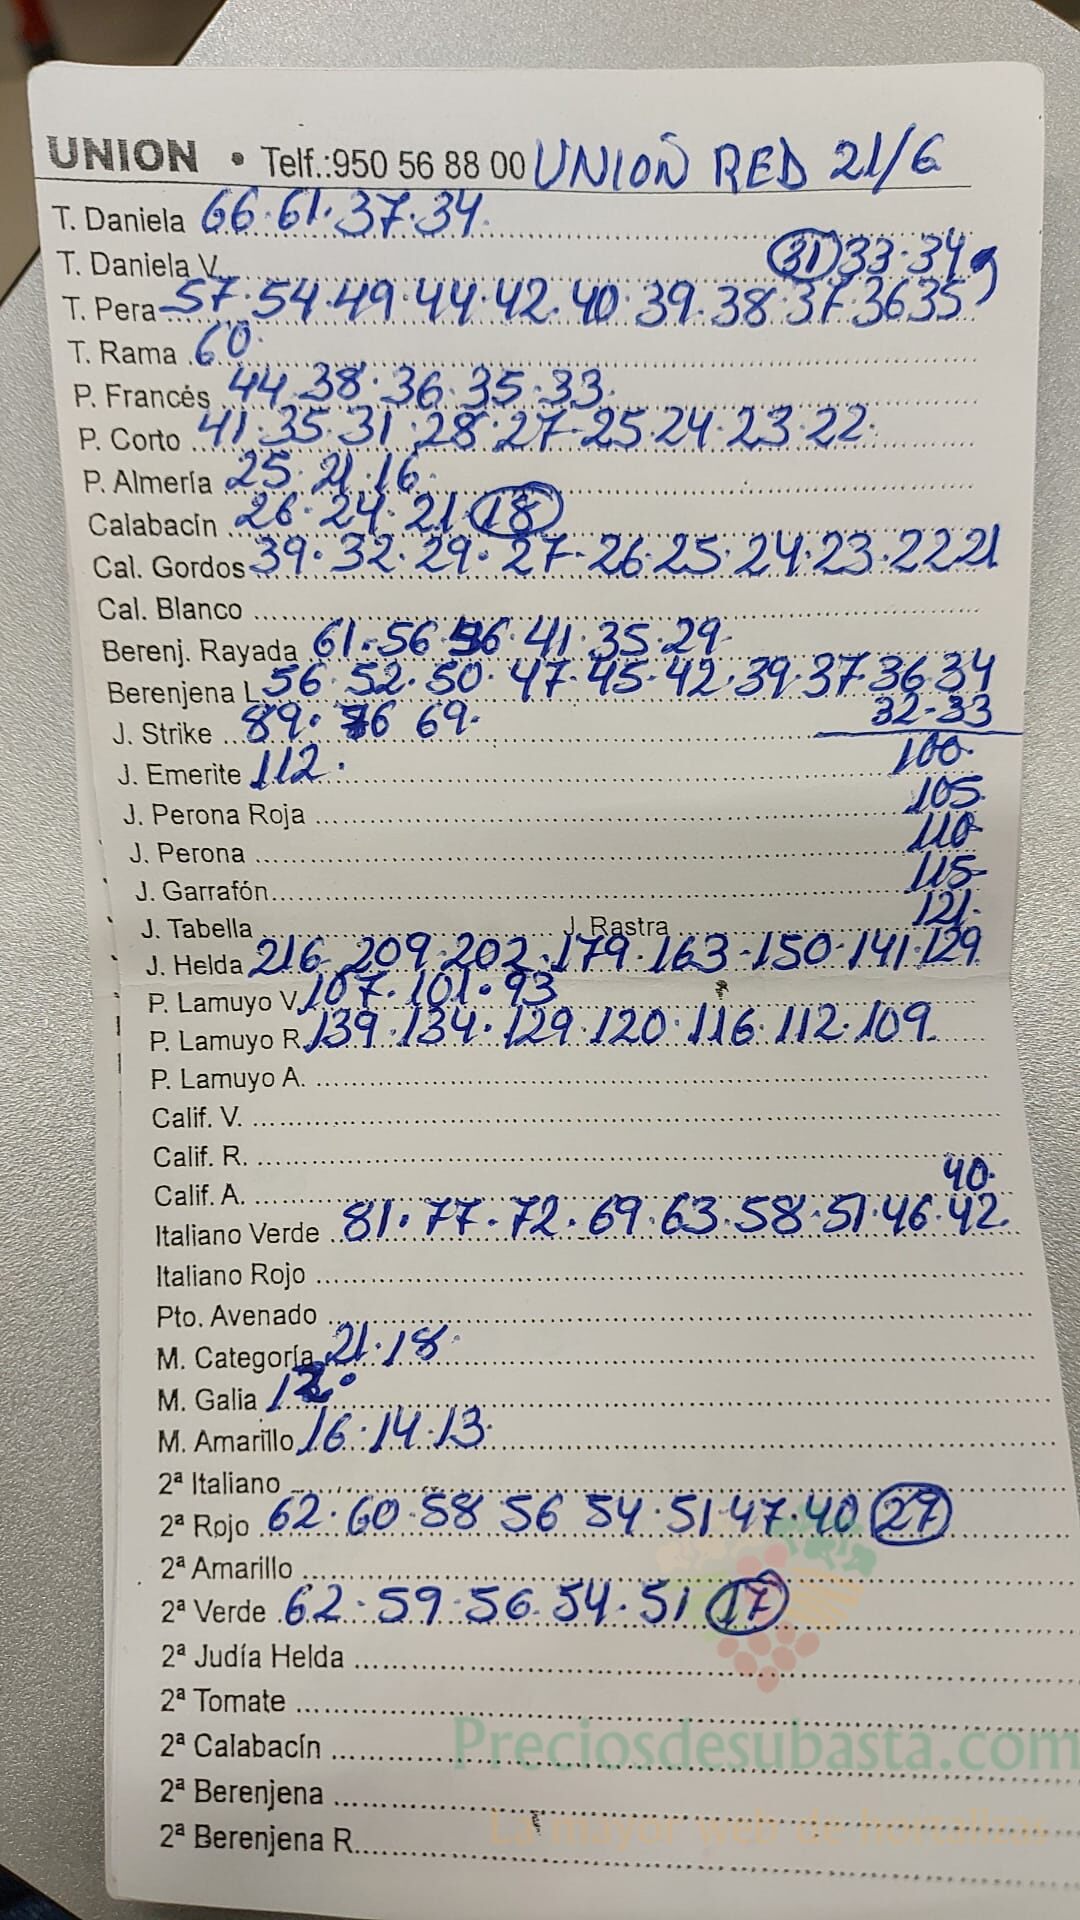 UNION • Telf.:950 56 88 00 UNION RED 21/6
T. Daniela 66.61.37.34.
T. Daniela V. 31 33.34
T. Pera 57.54.49.44.42.40.39.38.37 36 35
T. Rama 60.
P. Francés 44 38.36.35.33.
P. Corto 41.35.31.28.27.25.24.23.22.
P. Almería 25.21.16.
Calabacín 26.24.21 18
Cal. Gordos 39.32.29.27.26.25.24.23.22 21
Cal. Blanco
Berenj. Rayada 61.56 46.41.35.29
Berenjena L 56.52.50.47.45.42.39.37 36 34
J. Strike 89. 76 69. 32-33
J. Emerite 112. 100.
J. Perona Roja 105.
J. Perona 110-
J. Garrafón 115-
J. Tabella J. Rastra 121.
J. Helda 216 209.202.179.163.150.141.129
P. Lamuyo V. 107.101.93
P. Lamuyo R. 139.134.129.120.116.112.109.
P. Lamuyo A.
Calif. V.
Calif. R.
Calif. A. 40.
Italiano Verde 81.77.72.69.63.58.51.46.42.
Italiano Rojo
Pto. Avenado
M. Categoría 21.18.
M. Galia
M. Amarillo 16.14.13.
2ª Italiano
2ª Rojo 62.60.58 56 54.51 47.40 27
2ª Amarillo
2ª Verde 62.59.56.54.51 17
2ª Judía Helda
2ª Tomate
2ª Calabacín
Preciosdesubasta.com
2ª Berenjena
La mayor web de hortalizas
2ª Berenjena R.